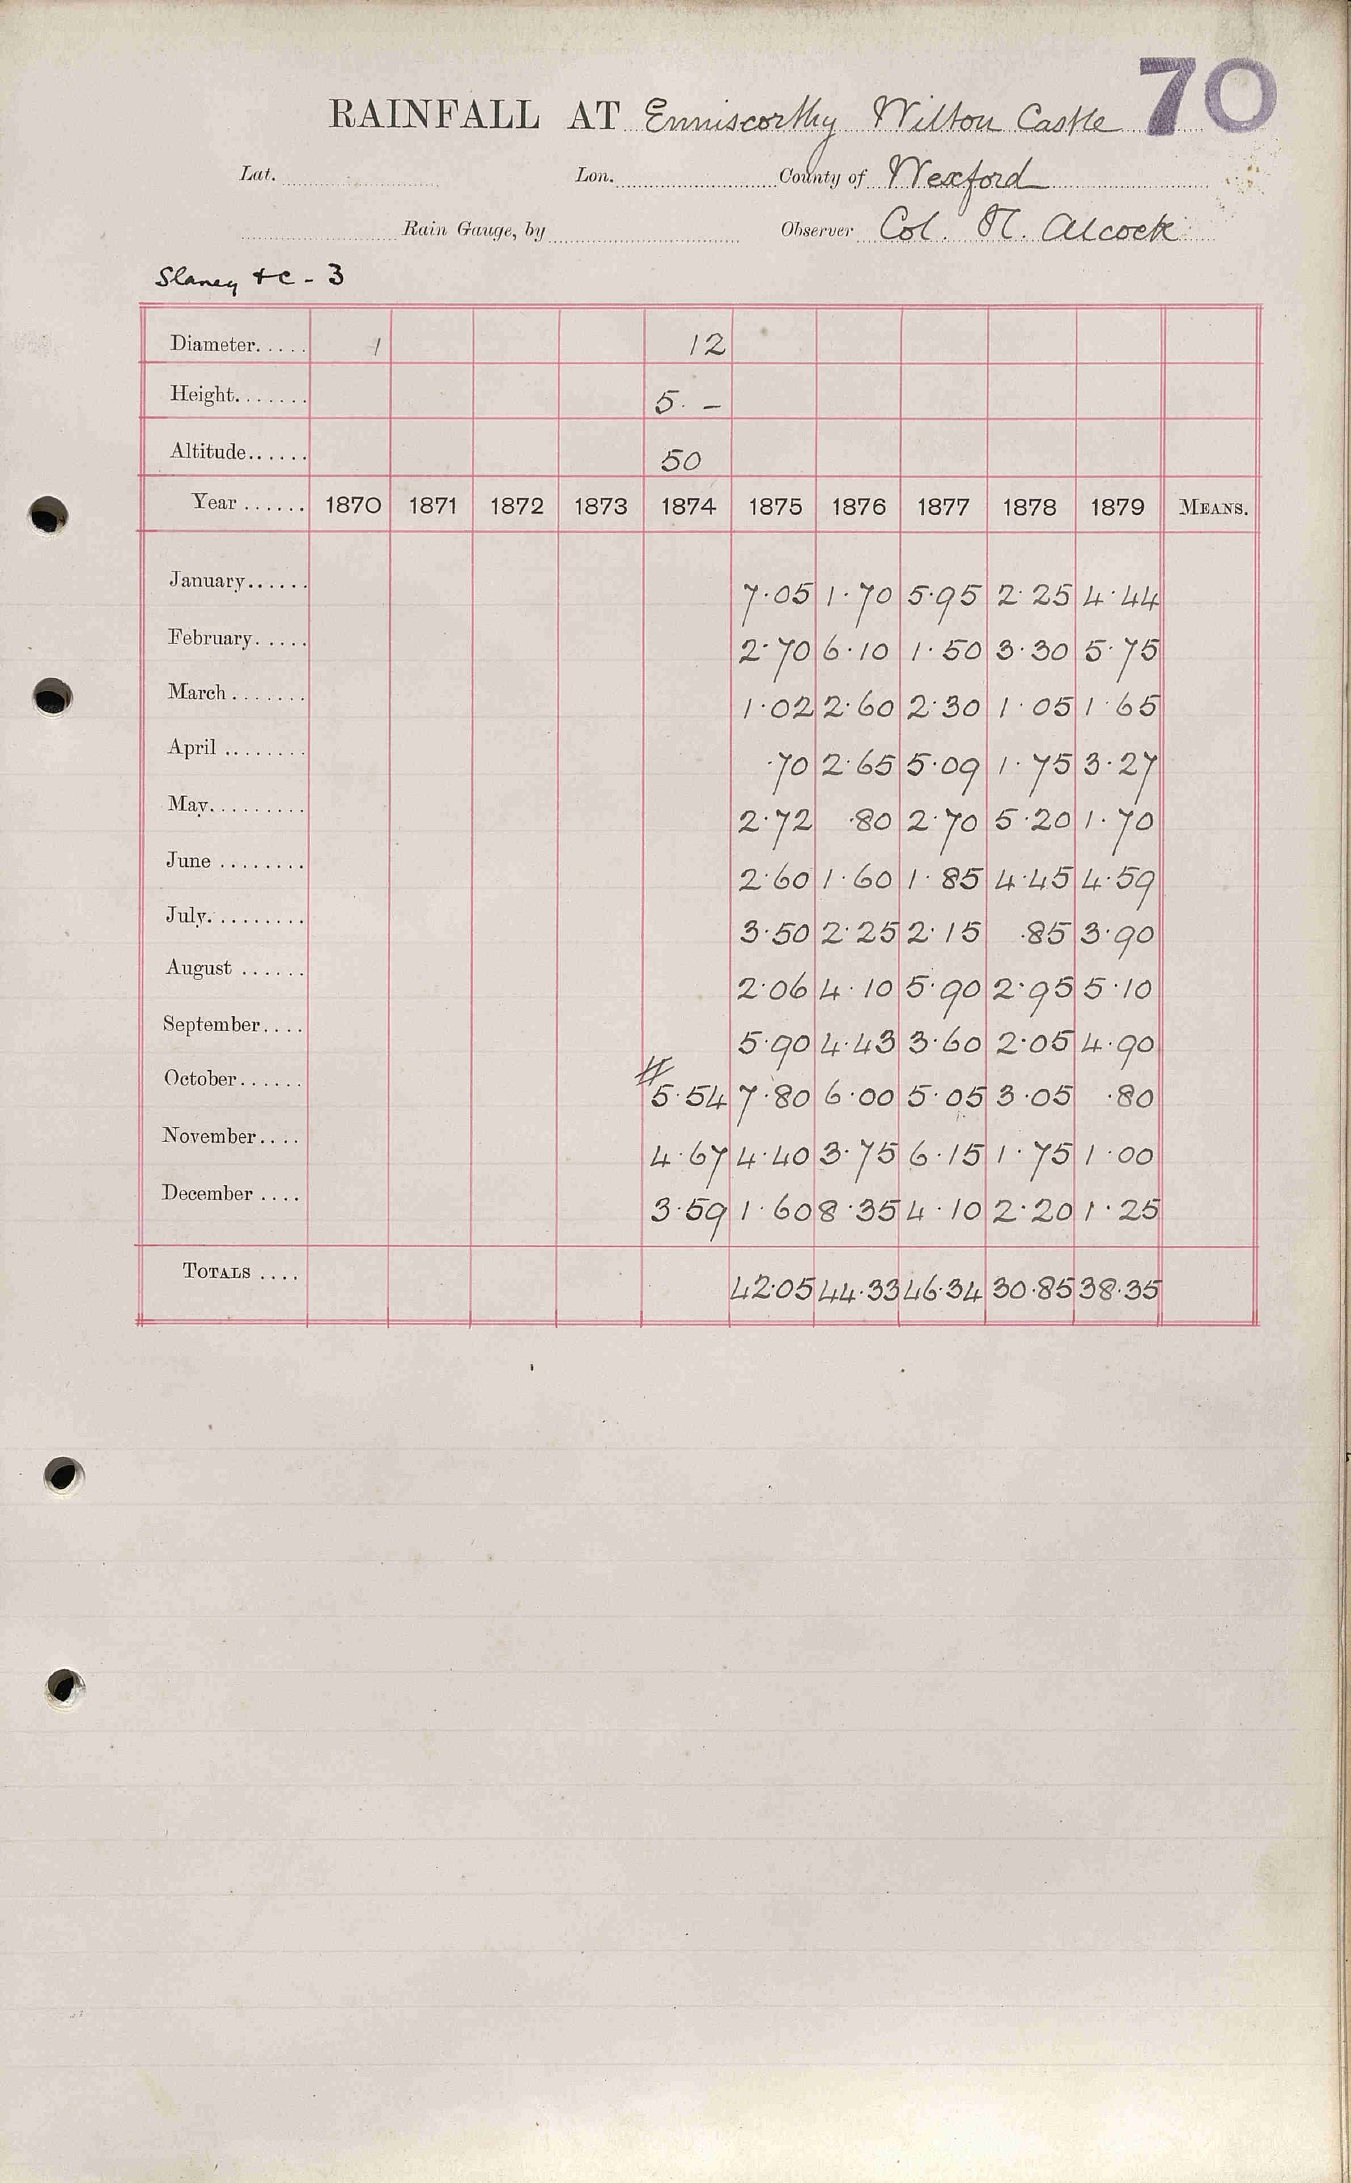 70
RAINFALL AT Enniscorthy Wilton Castle
Lat. Lon. County of Wexford
Rain Gauge, by Observer Col. H. Alcock
Slaney &c - 3
Diameter..... 1 12
Height....... 5. –
Altitude...... 50
Year ...... 1870 1871 1872 1873 1874 1875 1876 1877 1878 1879 MEANS.
January...... 7·05 1·70 5·95 2·25 4·44
February..... 2·70 6·10 1·50 3·30 5·75
March ....... 1·02 2·60 2·30 1·05 1·65
April ........ ·70 2·65 5·09 1·75 3·27
May......... 2·72 ·80 2·70 5·20 1·70
June ........ 2·60 1·60 1·85 4·45 4·59
July......... 3·50 2·25 2·15 ·85 3·90
August ...... 2·06 4·10 5·90 2·95 5·10
September.... 5·90 4·43 3·60 2·05 4·90
October...... 5·54 7·80 6·00 5·05 3·05 ·80
November.... 4·67 4·40 3·75 6·15 1·75 1·00
December .... 3·59 1·60 8·35 4·10 2·20 1·25
TOTALS .... 42·05 44·33 46·34 30·85 38·35